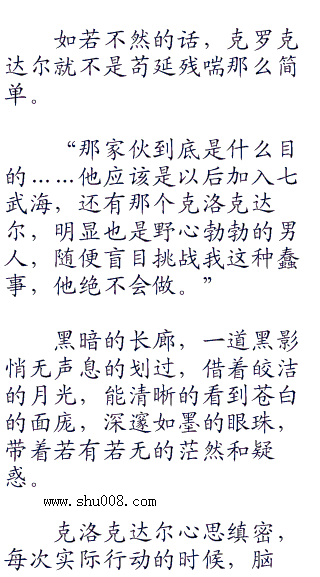 如若不然的话，克罗克
达尔就不是苟延残喘那么简
单。
“那家伙到底是什么目
的……他应该是以后加入七
武海，还有那个克洛克达
尔，明显也是野心勃勃的男
人，随便盲目挑战我这种蠢
事，他绝不会做。”
黑暗的长廊，一道黑影
悄无声息的划过，借着皎洁
的月光，能清晰的看到苍白
的面庞，深邃如墨的眼珠，
带着若有若无的茫然和疑
惑。
www.shu008.com
克洛克达尔心思缜密，
每次实际行动的时候，脑